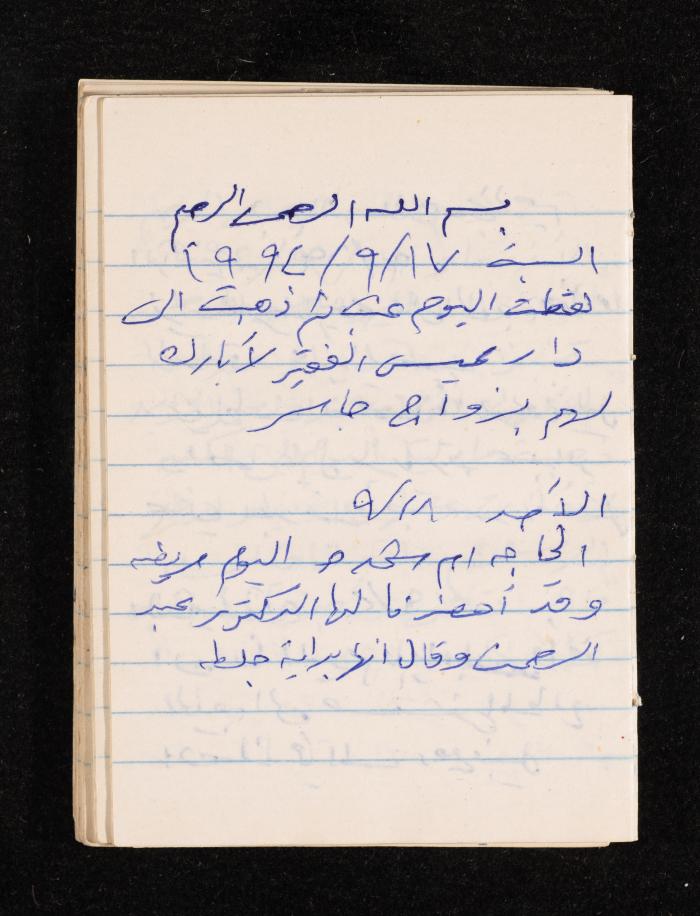 بسم الله الرحمن الرحيم
السبت ١٩٩٤/٩/١٧
لقطت اليوم عنب ثم ذهبت الى
دار عيسى الفقير لأبارك
لهم بزواج جاسر
الأحد ٩/١٨
الحاجه ام اليوم مريضه
وقد أحضرنا لها الدكتور عبد
الرحمن وقال انها بداية جلطه